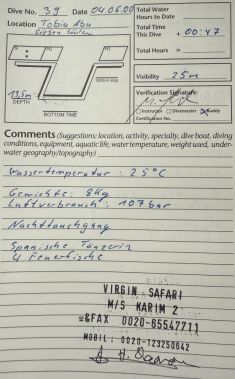 Dive No. 39 Date 04.06.00
Location Tobia Abu
Sieben Säulen
Total Water
Hours to Date
Total Time
This Dive + 00:47
Total Hours =
S: PG PG
13,5m
DEPTH
BOTTOM TIME
Visibility 25m
Verification Signature:
Instructor Divemaster Buddy
Certification No.
Comments (Suggestions: location, activity, specialty, dive boat, diving
conditions, equipment, aquatic life, water temperature, weight used, under-
water geography/topography)
Wassertemperatur: 25°C
Gewichte: 8kg
Luftverbrauch: 107bar
Nachttauchgang
Spanische Tänzerin
4 Feuerfische
VIRGIN SAFARI
M/S KARIM 2
&FAX 0020-65547711
MOBIL: 0020-123250642